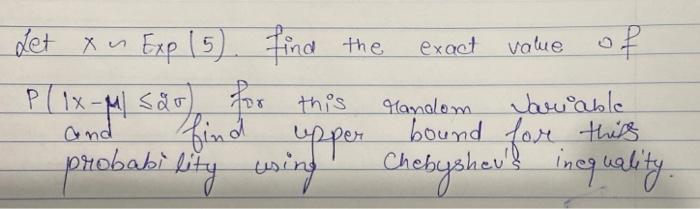 Let x ~ Exp(5). find the exact value of
P(|x-μ| ≤2σ) for this random variable
and find upper bound for this
probability using Chebyshev's inequality.